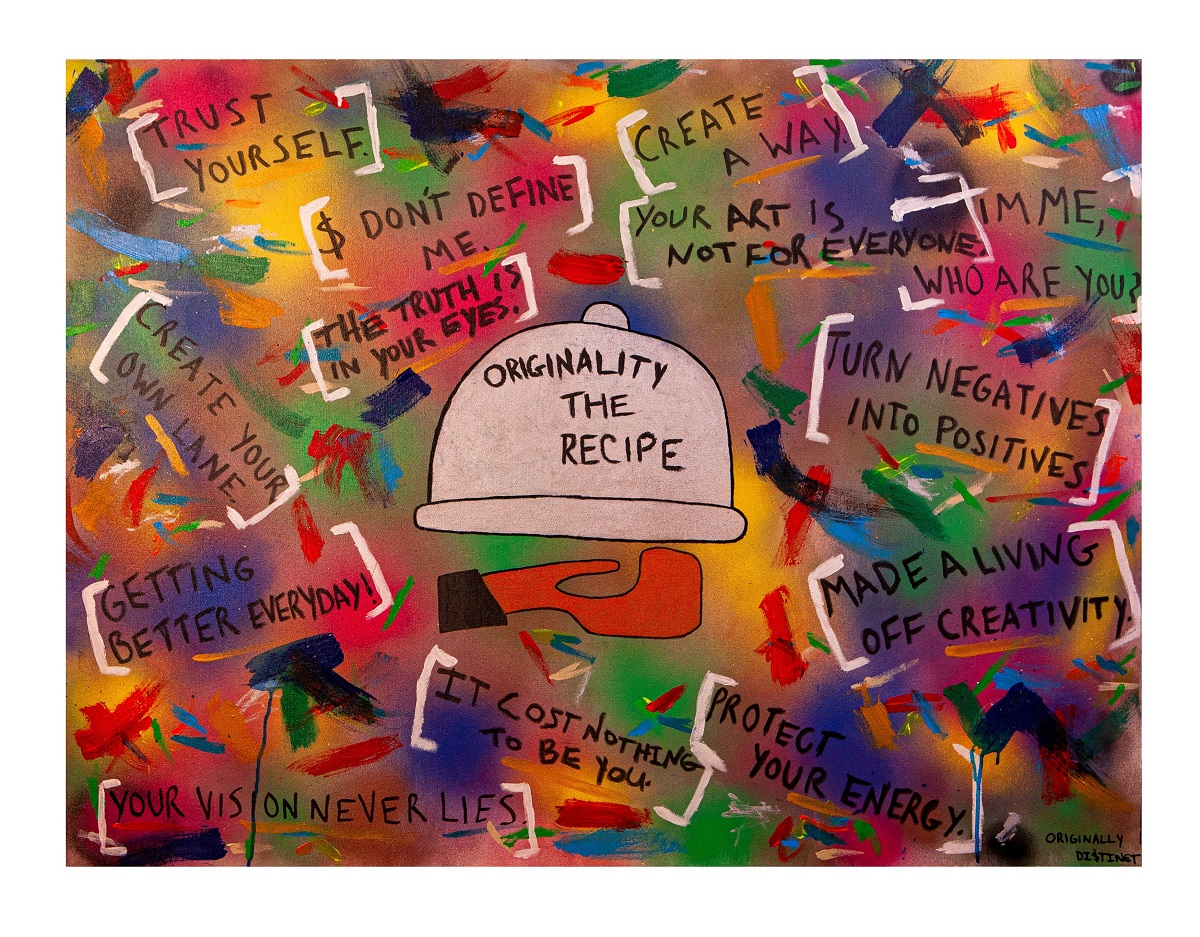 TRUST
YOURSELF.
CREATE
A WAY.
$ DON'T DEFINE
ME.
YOUR ART IS
NOT FOR EVERYONE
IM ME,
WHO ARE YOU?
THE TRUTH IS
IN YOUR EYES.
CREATE YOUR
OWN LANE.
ORIGINALITY
THE
RECIPE
TURN NEGATIVES
INTO POSITIVES.
GETTING
BETTER EVERYDAY!
MADE A LIVING
OFF CREATIVITY.
IT COST NOTHING
TO BE YOU.
PROTECT
YOUR ENERGY.
YOUR VISION NEVER LIES.
ORIGINALLY
DI$TINCT